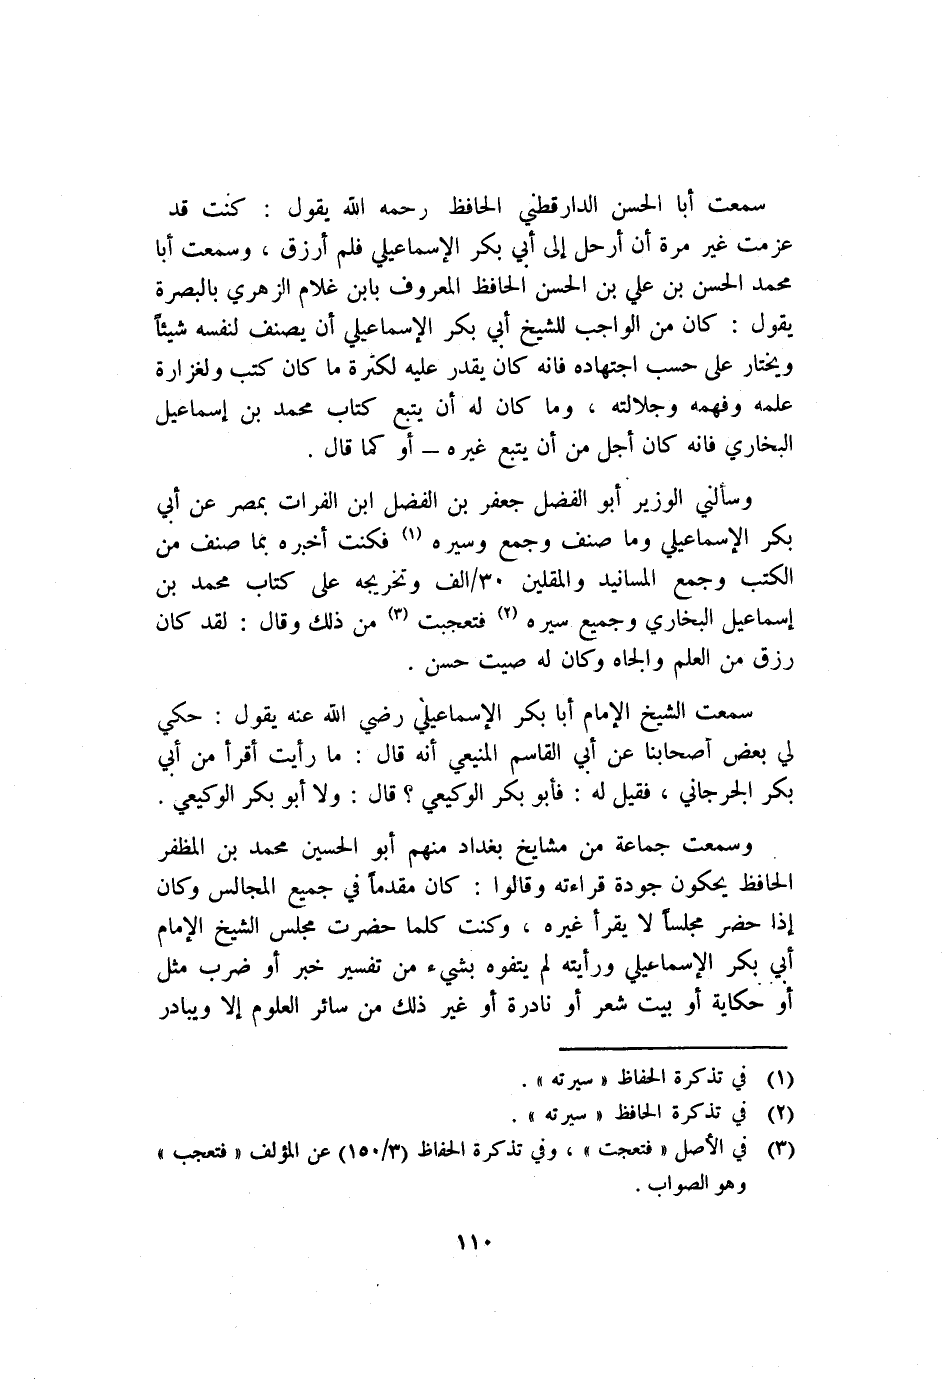 سمعت أبا الحسن الدارقطني الحافظ رحمه الله يقول : كنت قد
عزمت غير مرة أن أرحل إلى أبي بكر الإسماعيلي فلم أرزق ، وسمعت أبا
محمد الحسن بن علي بن الحسن الحافظ المعروف بابن غلام الزهري بالبصرة
يقول : كان من الواجب للشيخ أبي بكر الإسماعيلي أن يصنف لنفسه شيئاً
ويختار على حسب اجتهاده فانه كان يقدر عليه لكثرة ما كان كتب ولغزارة
علمه وفهمه وجلالته ، وما كان له أن يتبع كتاب محمد بن إسماعيل
البخاري فانه كان أجل من أن يتبع غيره – أو كما قال .
وسألني الوزير أبو الفضل جعفر بن الفضل ابن الفرات بمصر عن أبي
بكر الإسماعيلي وما صنف وجمع وسيره (١) فكنت أخبره بما صنف من
الكتب وجمع المسانيد والمقلين ٣٠/الف وتخريجه على كتاب محمد بن
إسماعيل البخاري وجميع سيره (٢) فتعجبت (٣) من ذلك وقال : لقد كان
رزق من العلم والجاه وكان له صيت حسن .
سمعت الشيخ الإمام أبا بكر الإسماعيلي رضي الله عنه يقول : حكي
لي بعض أصحابنا عن أبي القاسم المنيعي أنه قال : ما رأيت أقرأ من أبي
بكر الجرجاني ، فقيل له : فأبو بكر الوكيعي ؟ قال : ولا أبو بكر الوكيعي .
وسمعت جماعة من مشايخ بغداد منهم أبو الحسين محمد بن المظفر
الحافظ يحكون جودة قراءته وقالوا : كان مقدماً في جميع المجالس وكان
إذا حضر مجلساً لا يقرأ غيره ، وكنت كلما حضرت مجلس الشيخ الإمام
أبي بكر الإسماعيلي ورأيته لم يتفوه بشيء من تفسير خبر أو ضرب مثل
أو حكاية أو بيت شعر أو نادرة أو غير ذلك من سائر العلوم إلا ويبادر
(١) في تذكرة الحفاظ « سيرته » .
(٢) في تذكرة الحافظ « سيرته » .
(٣) في الأصل « فتعجت » ، وفي تذكرة الحفاظ (١٥٠/٣) عن المؤلف « فتعجب »
وهو الصواب .
١١٠